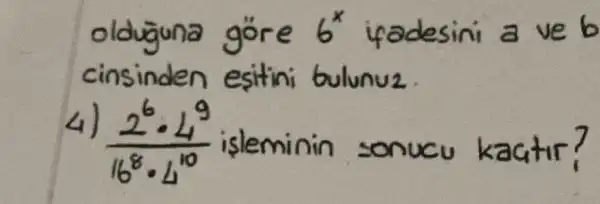 olduğuna göre 6^x ifadesini a ve b
cinsinden eşitini bulunuz.
4) \frac{2^6 . 4^9}{16^8 . 4^{10}} işleminin sonucu kaçtır?